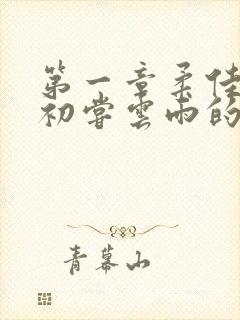 第一章柔佳
初尝云雨的
青幕山